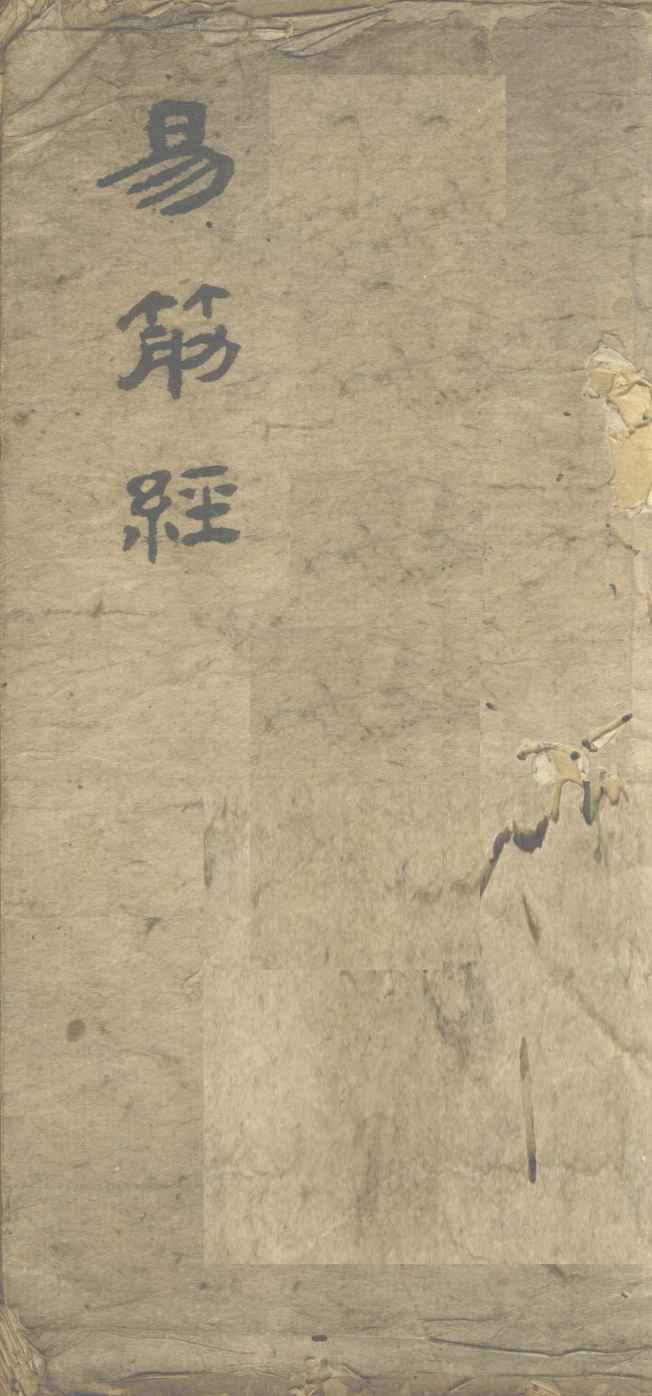 易筋經